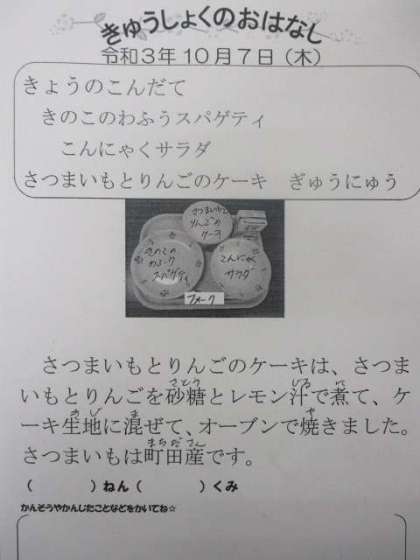 きゅうしょくのおはなし
令和3年10月7日（木）
きょうのこんだて
きのこのわふうスパゲティ
こんにゃくサラダ
さつまいもとりんごのケーキ　ぎゅうにゅう
さつまいもと
りんごの
ケーキ
きのこの
わふう
スパゲティ
こんにゃく
サラダ
フォーク
さつまいもとりんごのケーキは、さつま
いもとりんごを砂糖とレモン汁で煮て、ケ
ーキ生地に混ぜて、オーブンで焼きました。
さつまいもは町田産です。
（　　　）ねん（　　　）くみ
かんそうやかんじたことなどをかいてね☆